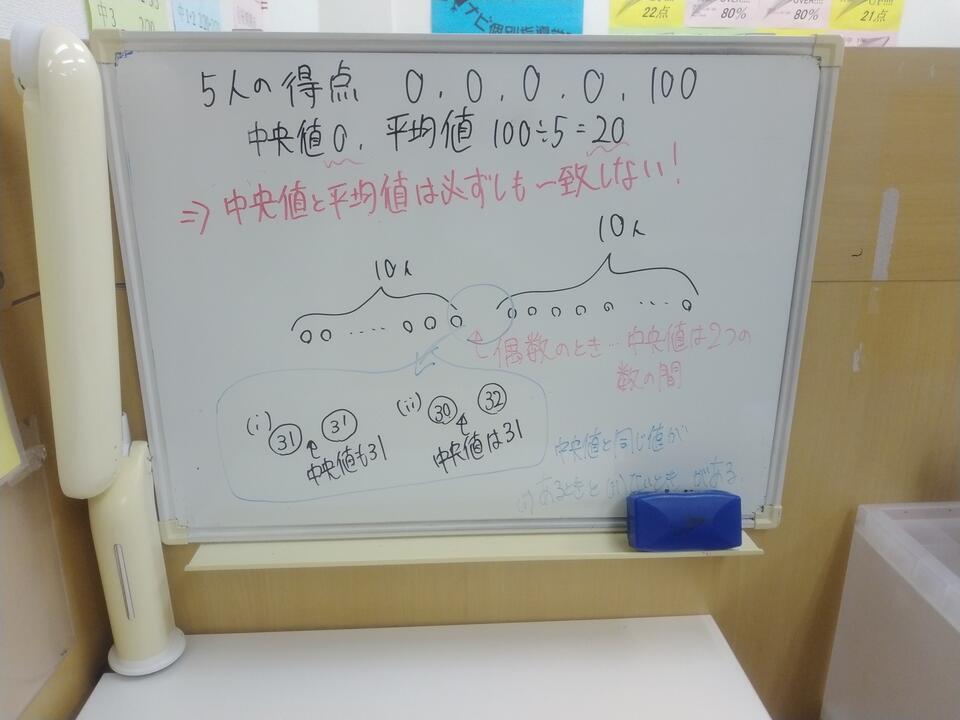 中3
22点
80%
80%
21点
ナビ個別指導学
5人の得点 0, 0, 0, 0, 100
中央値0, 平均値 100÷5=20
⇒ 中央値と平均値は必ずしも一致しない!
10人 10人
○○ ・・・・ ○○○ ○○○○○ ・・・ ○
偶数のとき…中央値は2つの
数の間
(i) 31 31 (ii) 30 32
中央値も31 中央値は31
中央値と同じ値が
(i)あるときと(ii)ないとき がある.